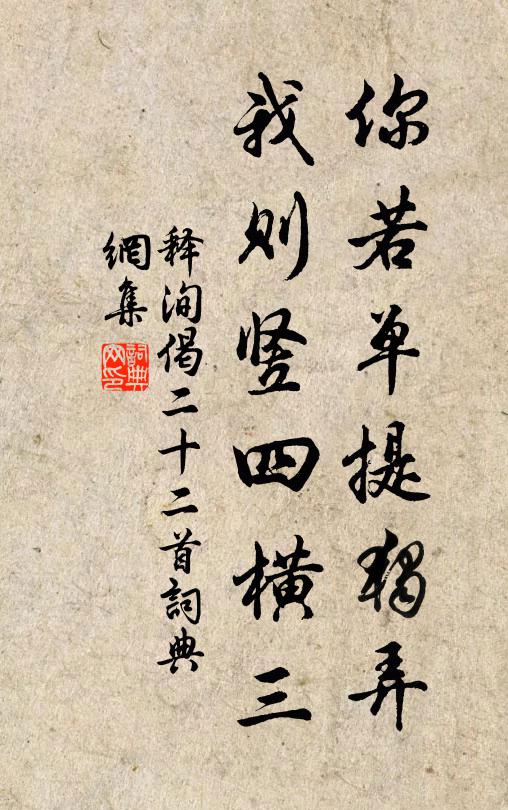 你若单提独弄
我则竖四横三
释洵偈二十二首詞典
網集
詞典
网印